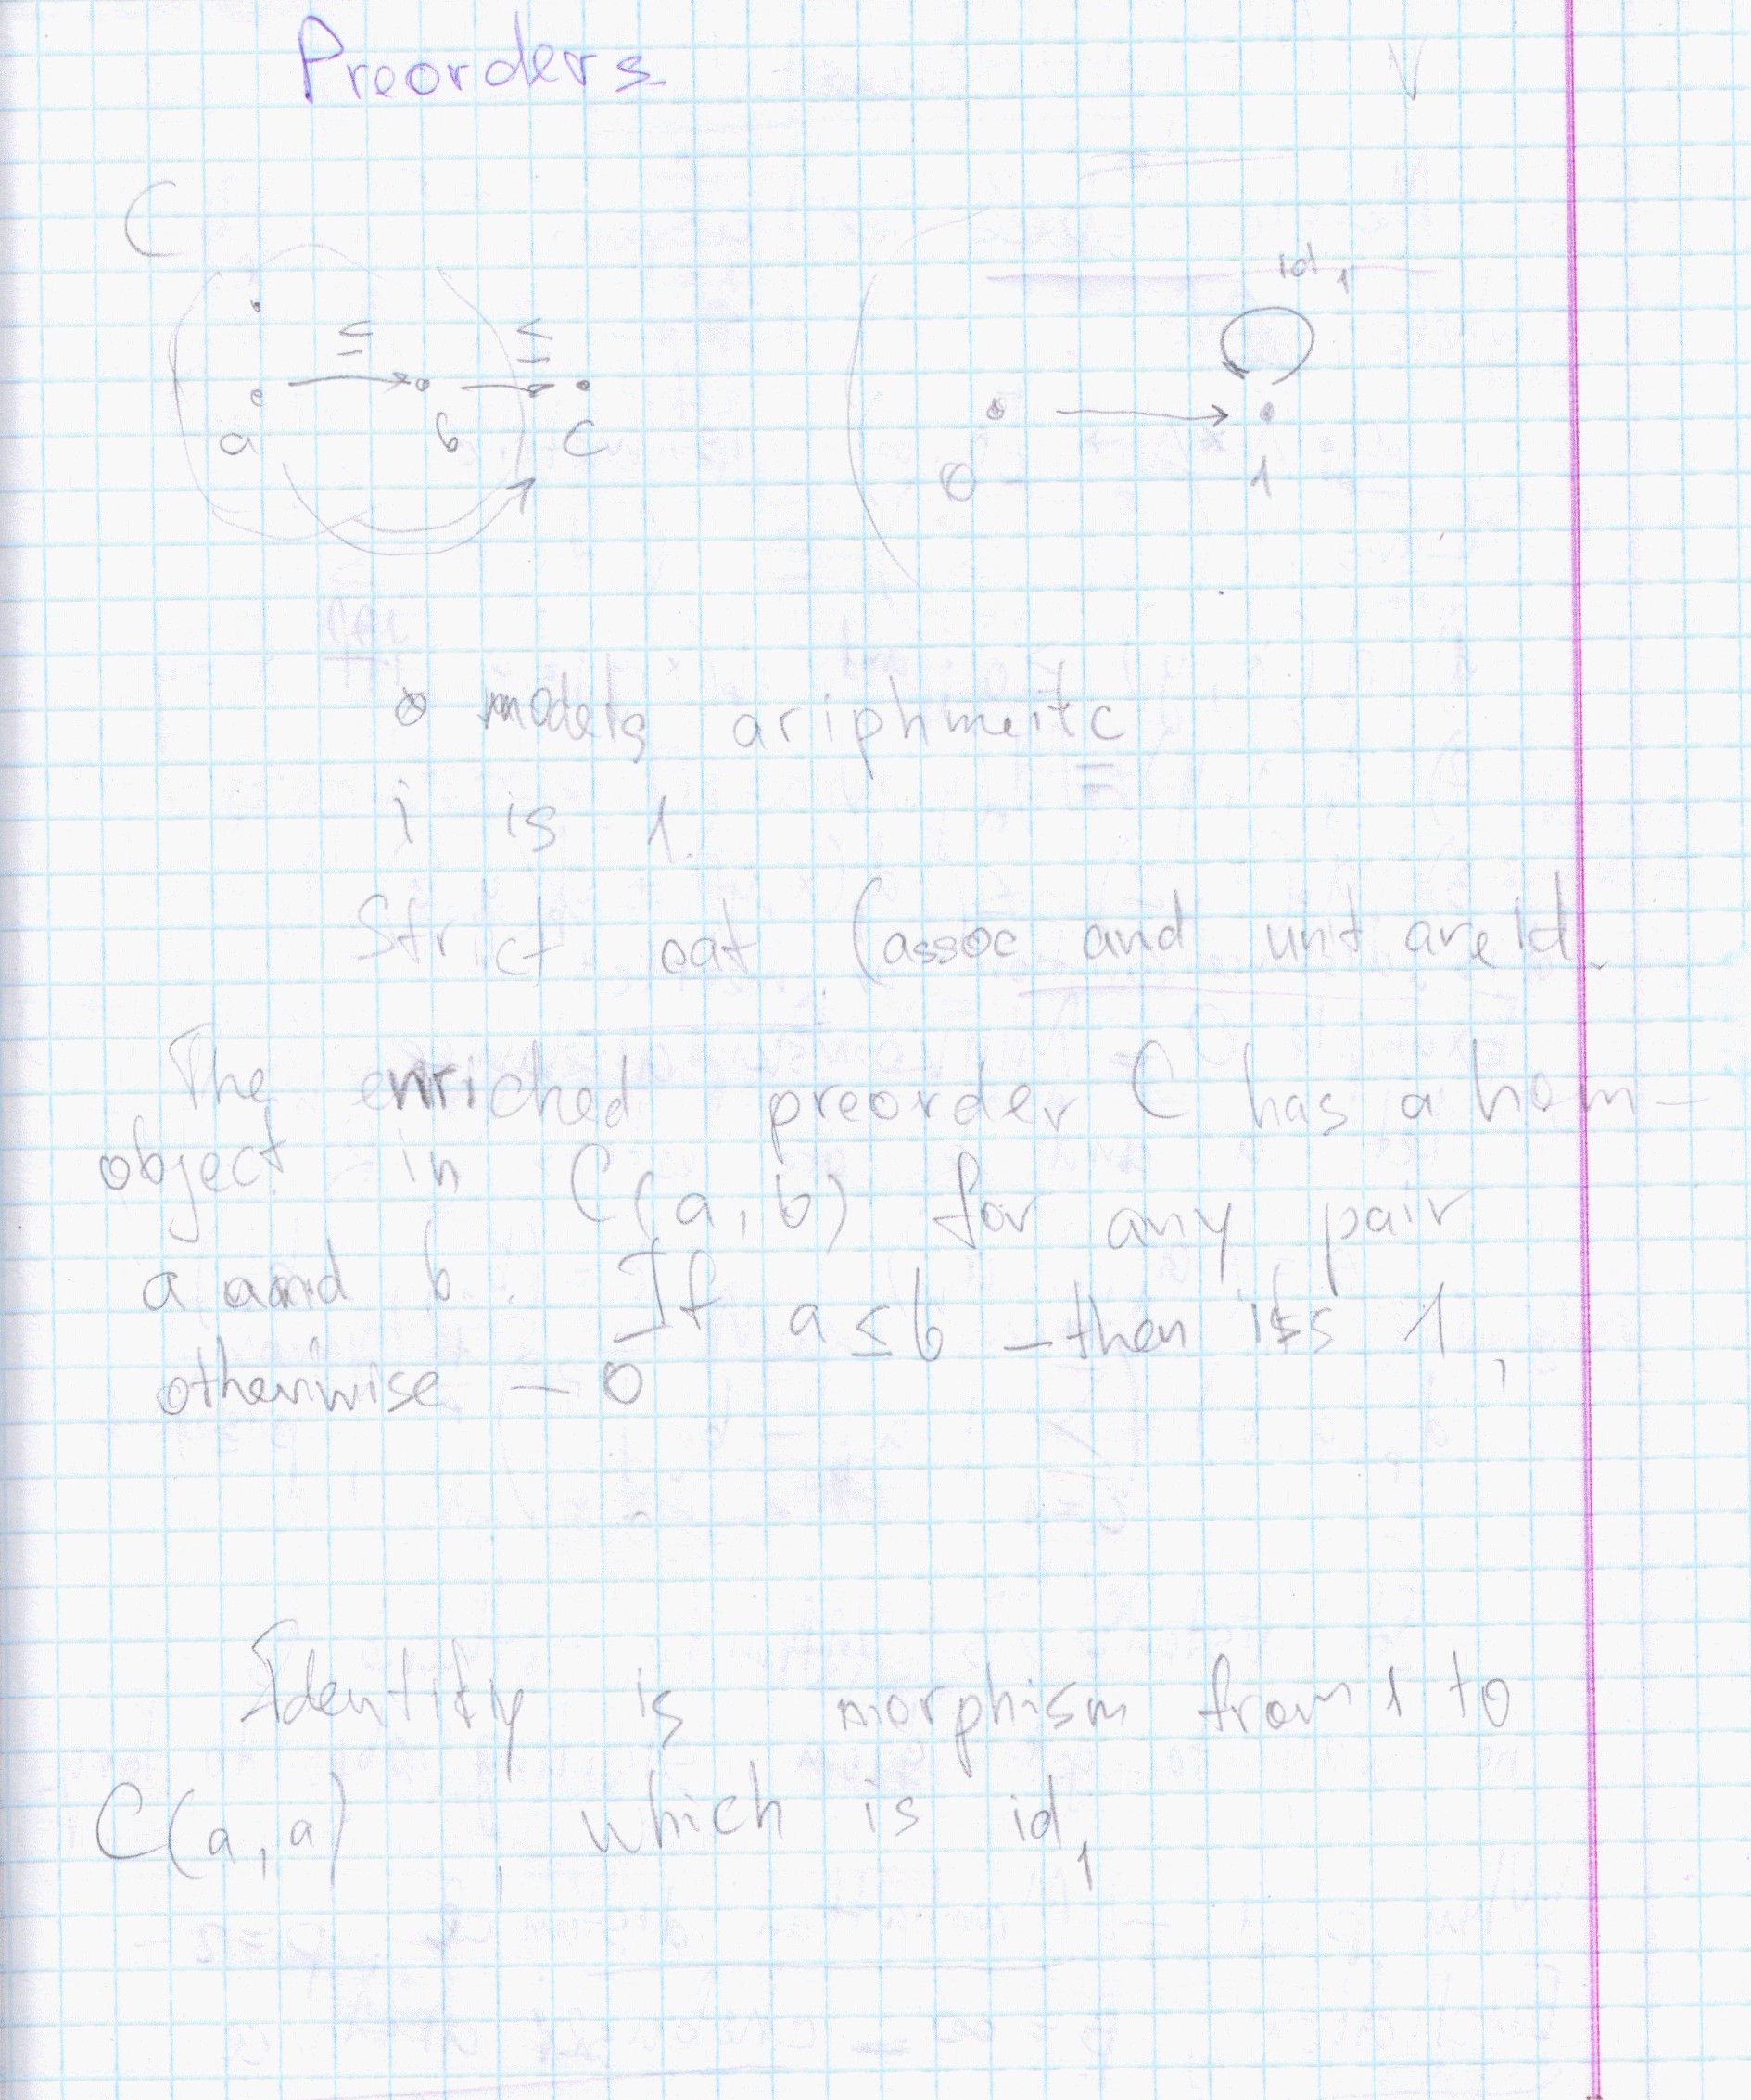 Preorders
V
C
id₁
≤ ≤
a b c
0 1
⊗ models ariphmeitc
i is 1.
Strict cat (assoc and unit are id.
The enriched preorder C has a hom-
object in C(a, b) for any pair
a and b. If a ≤ b – then its 1,
otherwise – 0
Identity is morphism from 1 to
C(a, a) , which is id₁